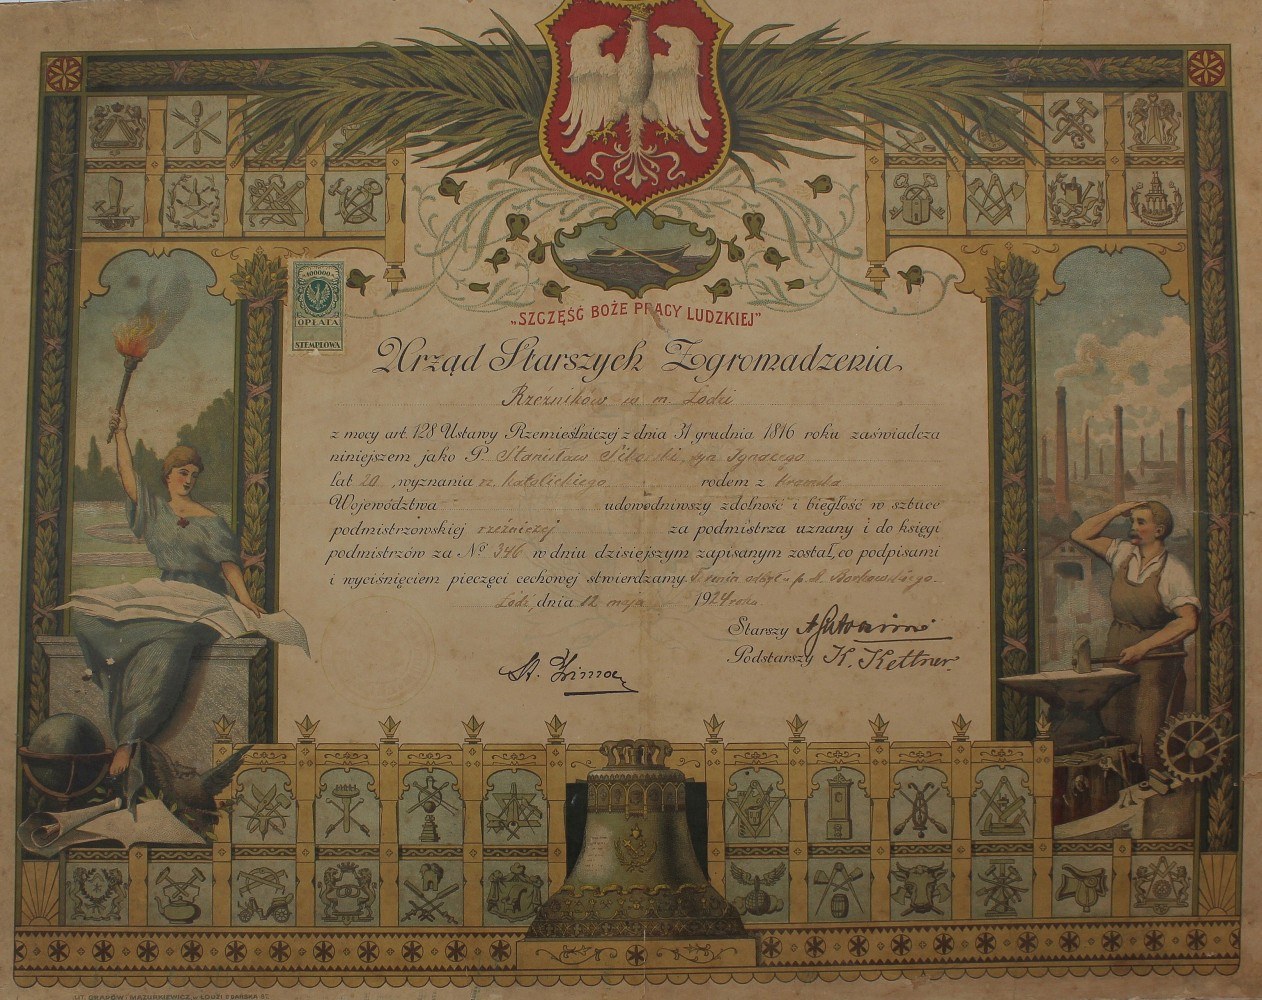 100000
OPŁATA
STEMPLOWA
„SZCZĘŚĆ BOŻE PRACY LUDZKIEJ”
Urząd Starszych Zgromadzenia
Rzeźników w m. Łodzi
z mocy art. 128 Ustawy Rzemieślniczej z dnia 31 grudnia 1816 roku zaświadcza
niniejszem jako P. Stanisław syn Ignacego
lat 20, wyznania rz. katolickiego rodem z
Województwa - udowodniwszy zdolność i biegłość w sztuce
podmistrzowskiej rzeźniczej za podmistrza uznany i do księgi
podmistrzów za № 346 w dniu dzisiejszym zapisanym został, co podpisami
i wyciśnięciem pieczęci cechowej stwierdzamy. Borkowskiego
Łódź, dnia 12 maja 1924 roku
Starszy
Podstarszy K. Kettner
St.
LIT. GRAFÓW: MAZURKIEWICZ, w ŁODZI